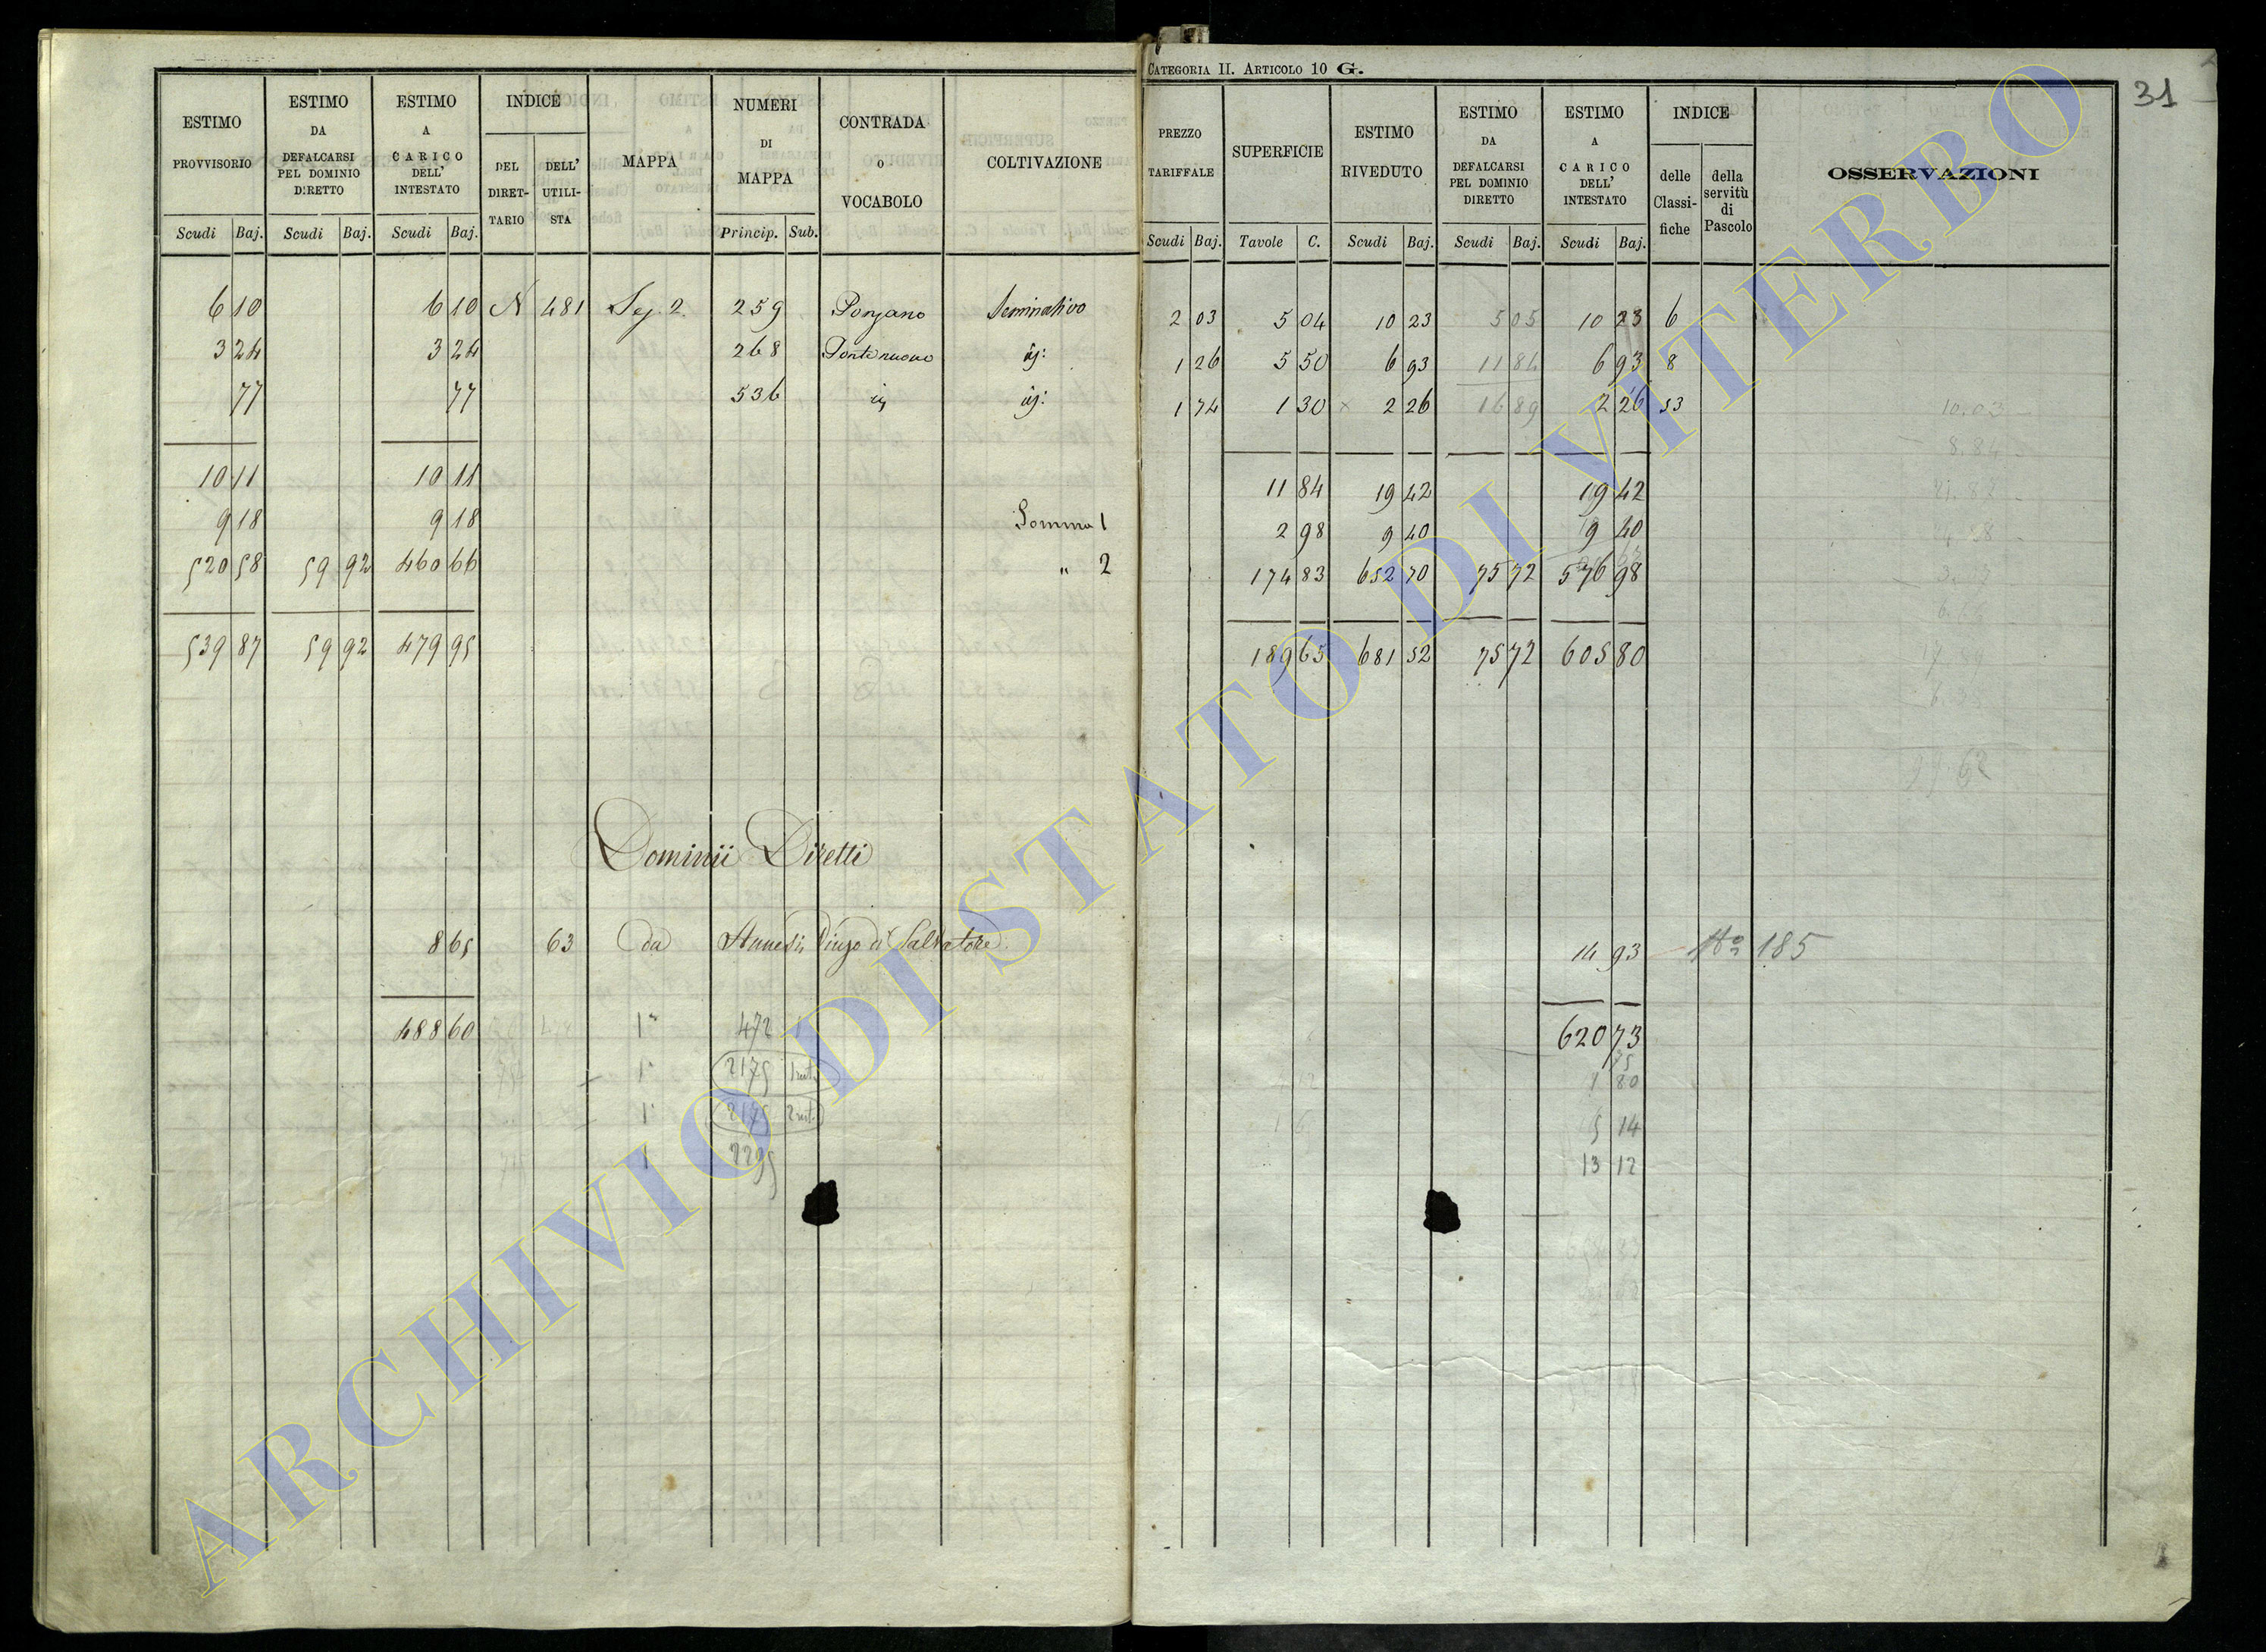 CATEGORIA II. ARTICOLO 10 G.
31
ESTIMO PROVVISORIO | ESTIMO DA DEFALCARSI PEL DOMINIO DIRETTO | ESTIMO A CARICO DELL' INTESTATO | INDICE DEL DIRETTARIO | DELL' UTILISTA | MAPPA | NUMERI DI MAPPA | CONTRADA O VOCABOLO | COLTIVAZIONE | PREZZO TARIFFALE | SUPERFICIE | ESTIMO RIVEDUTO | ESTIMO DA DEFALCARSI PEL DOMINIO DIRETTO | ESTIMO A CARICO DELL' INTESTATO | INDICE delle Classifiche | della servitù di Pascolo | OSSERVAZIONI
Scudi Baj. Scudi Baj. Scudi Baj. Princip. Sub. Scudi Baj. Tavole C. Scudi Baj. Scudi Baj. Scudi Baj.
6 10 6 10 N 481 Sez. 2. 259 Ponzano Seminativo 2 03 5 04 10 23 5 05 10 23 6
3 24 3 24 268 Ponte nuovo id: 1 26 5 50 6 93 11 84 6 93 8
77 77 536 id id: 1 74 1 30 × 2 26 16 89 2 26 53
10.03
8.84
10 11 10 11 11 84 19 42 19 42
9 18 9 18 Somma 1 2 98 9 40 9 40
520 58 59 92 460 66 " 2 174 83 652 70 75 72 576 98
539 87 59 92 479 95 189 65 681 52 75 72 605 80
Dominii Diretti
8 65 63 da di Salvatore 14 93 No 185
488 60 1° 472 620 73
1° 2175 1 80
1° 2175 5 14
1 2295 13 12
ARCHIVIO DI STATO DI VITERBO